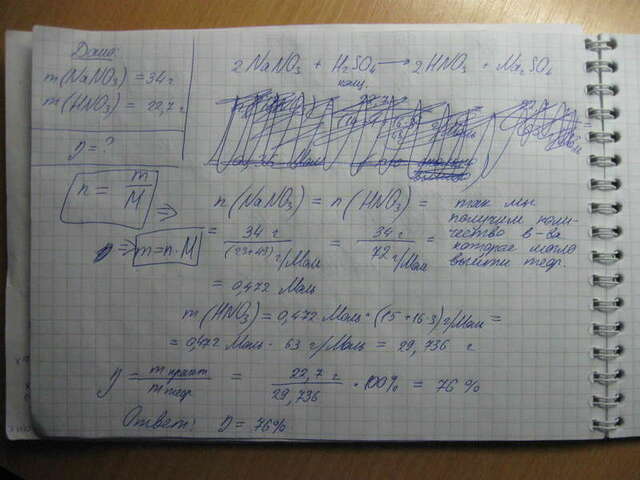 Дано:
m(NaNO₃) = 34 г
m(HNO₃) = 22,7 г
η = ?
2NaNO₃ + H₂SO₄ ⟶ 2HNO₃ + Na₂SO₄
конц.
n = m/M ⇒
⇒ m = n·M
n(NaNO₃) = n(HNO₃) = так мы
получим коли-
чество в-ва
которое могло
выйти теор.
= 34 г / (23+49) г/моль = 34 г / 72 г/моль =
= 0,472 моль
m(HNO₃) = 0,472 моль · (15+16·3) г/моль =
= 0,472 моль · 63 г/моль = 29,736 г
η = m практ / m теор. = 22,7 г / 29,736 · 100% = 76 %
Ответ: η = 76%